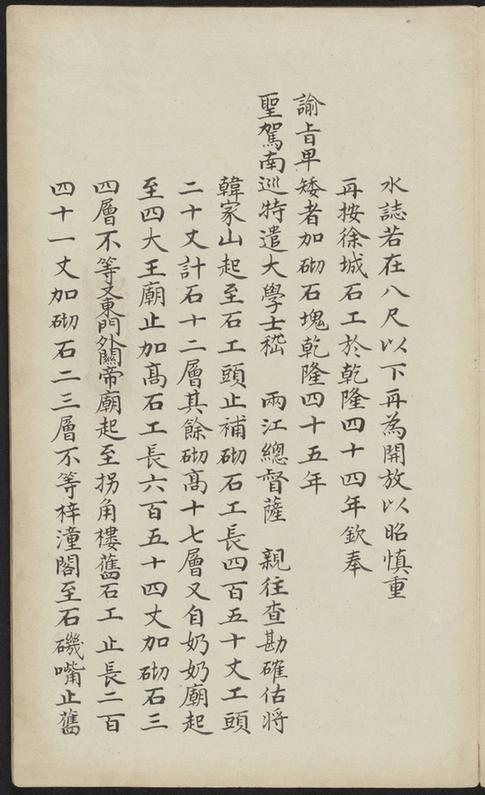 水誌若在八尺以下再為開放以昭慎重
再按徐城石工於乾隆四十四年欽奉
諭旨卑矮者加砌石塊乾隆四十五年
聖駕南巡特遣大學士嵇　兩江總督薩　親往查勘確估將
韓家山起至石工頭止補砌石工長四百五十丈工頭
二十丈計石十二層其餘砌高十七層又自奶奶廟起
至四大王廟止加高石工長六百五十四丈加砌石三
四層不等又東門外關帝廟起至拐角樓舊石工止長二百
四十一丈加砌石二三層不等梓潼閣至石磯嘴止舊